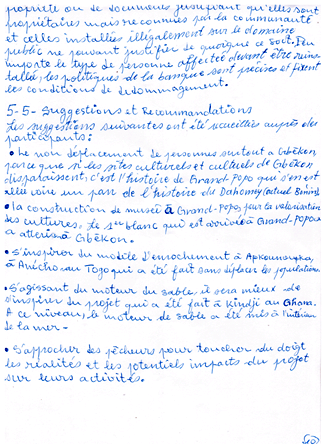 propriété ou de documents justifiant qu'elles sont
propriétaires mais reconnues par la communauté
et celles installées illégalement sur le domaine
public ne pouvant justifier de quoique ce soit. Peu
importe le type de personne affectée devant être réins-
tallée, les politiques de la banque sont précises et fixent
les conditions de dédommagement.
5-5- Suggestions et Recommandations
Les suggestions suivantes ont été recueillies auprès des
participants :
• Le non déplacement de personnes surtout à Gbêkon
parce que si les sites culturels et cultuels de Gbêkon
disparaissent, c'est l'histoire de Grand-Popo qui s'en est
allée voire un pan de l'histoire du Dahomey (actuel Bénin)
• la construction de musée à Grand-Popo pour la valorisation
des cultures. Le 1er blanc qui est arrivé à Grand-Popo
a atterri à Gbêkon.
• S'inspirer du modèle d'enrochement à
à Aného au Togo qui a été fait sans déplacer les populations
• S'agissant du moteur de sable, il sera mieux de
s'inspirer du projet qui a été fait à Kindji au Ghana.
A ce niveau, le moteur de sable a été mis à l'intérieur
de la mer -
• S'approcher des pêcheurs pour toucher du doigt
les réalités et les potentiels impacts du projet
sur leurs activités.